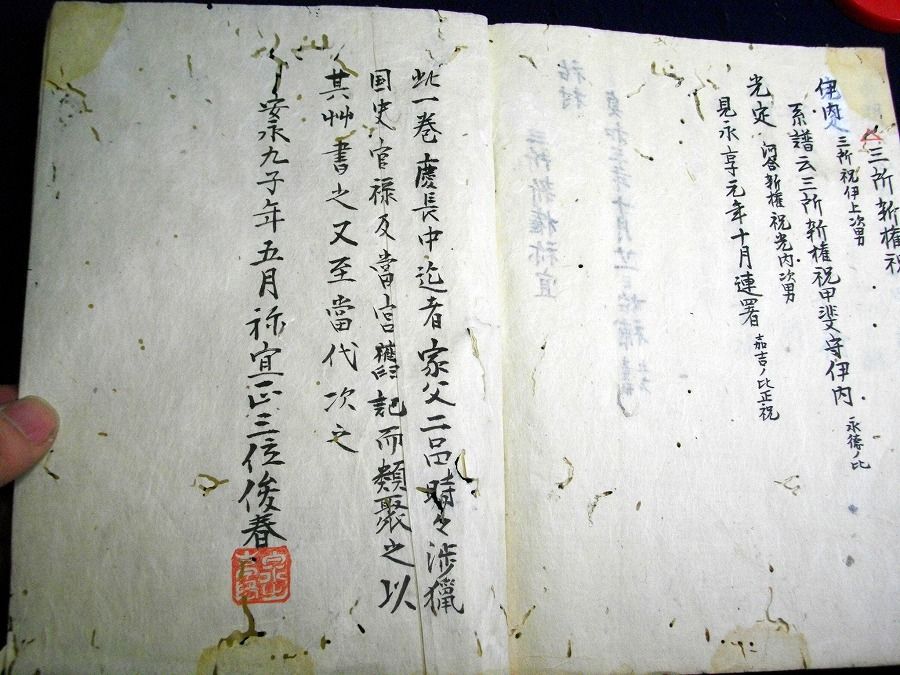 三所新権祝
伊内 三所祝伊上次男
系譜云三所新権祝甲斐守伊内 永徳ノ比
光定 河合新権祝光内次男
見永享元年十月連署 嘉吉ノ比正祝
此一巻慶長中迄者家父二品時々渉獵
国史官禄及當宮舊記而類聚之以
其艸書之又至當代次之
安永九子年五月祢宜正三位俊春